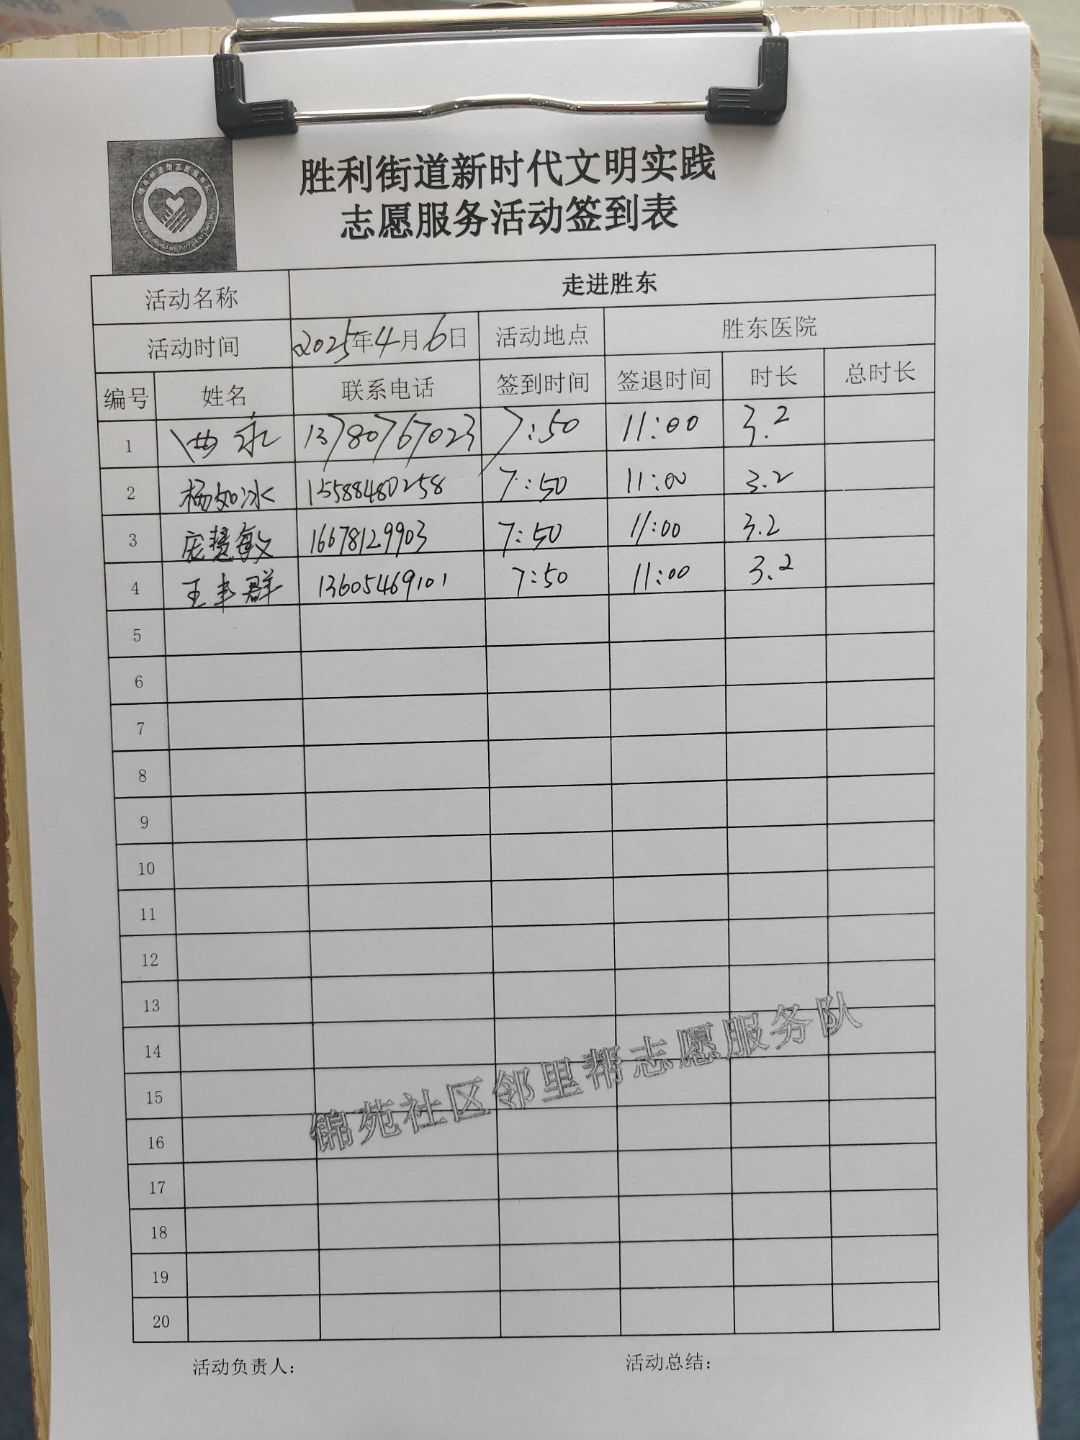 胜利街道新时代文明实践
志愿服务活动签到表
活动名称 走进胜东
活动时间 2025年4月6日 活动地点 胜东医院
编号 姓名 联系电话 签到时间 签退时间 时长 总时长
1 13780767023 7:50 11:00 3.2
2 杨如冰 15588480258 7:50 11:00 3.2
3 庞慧敏 16678129903 7:50 11:00 3.2
4 王丰群 13605469101 7:50 11:00 3.2
5
6
7
8
9
10
11
12
13
14
15
16
17
18
19
20
锦苑社区邻里帮志愿服务队
活动负责人： 活动总结：